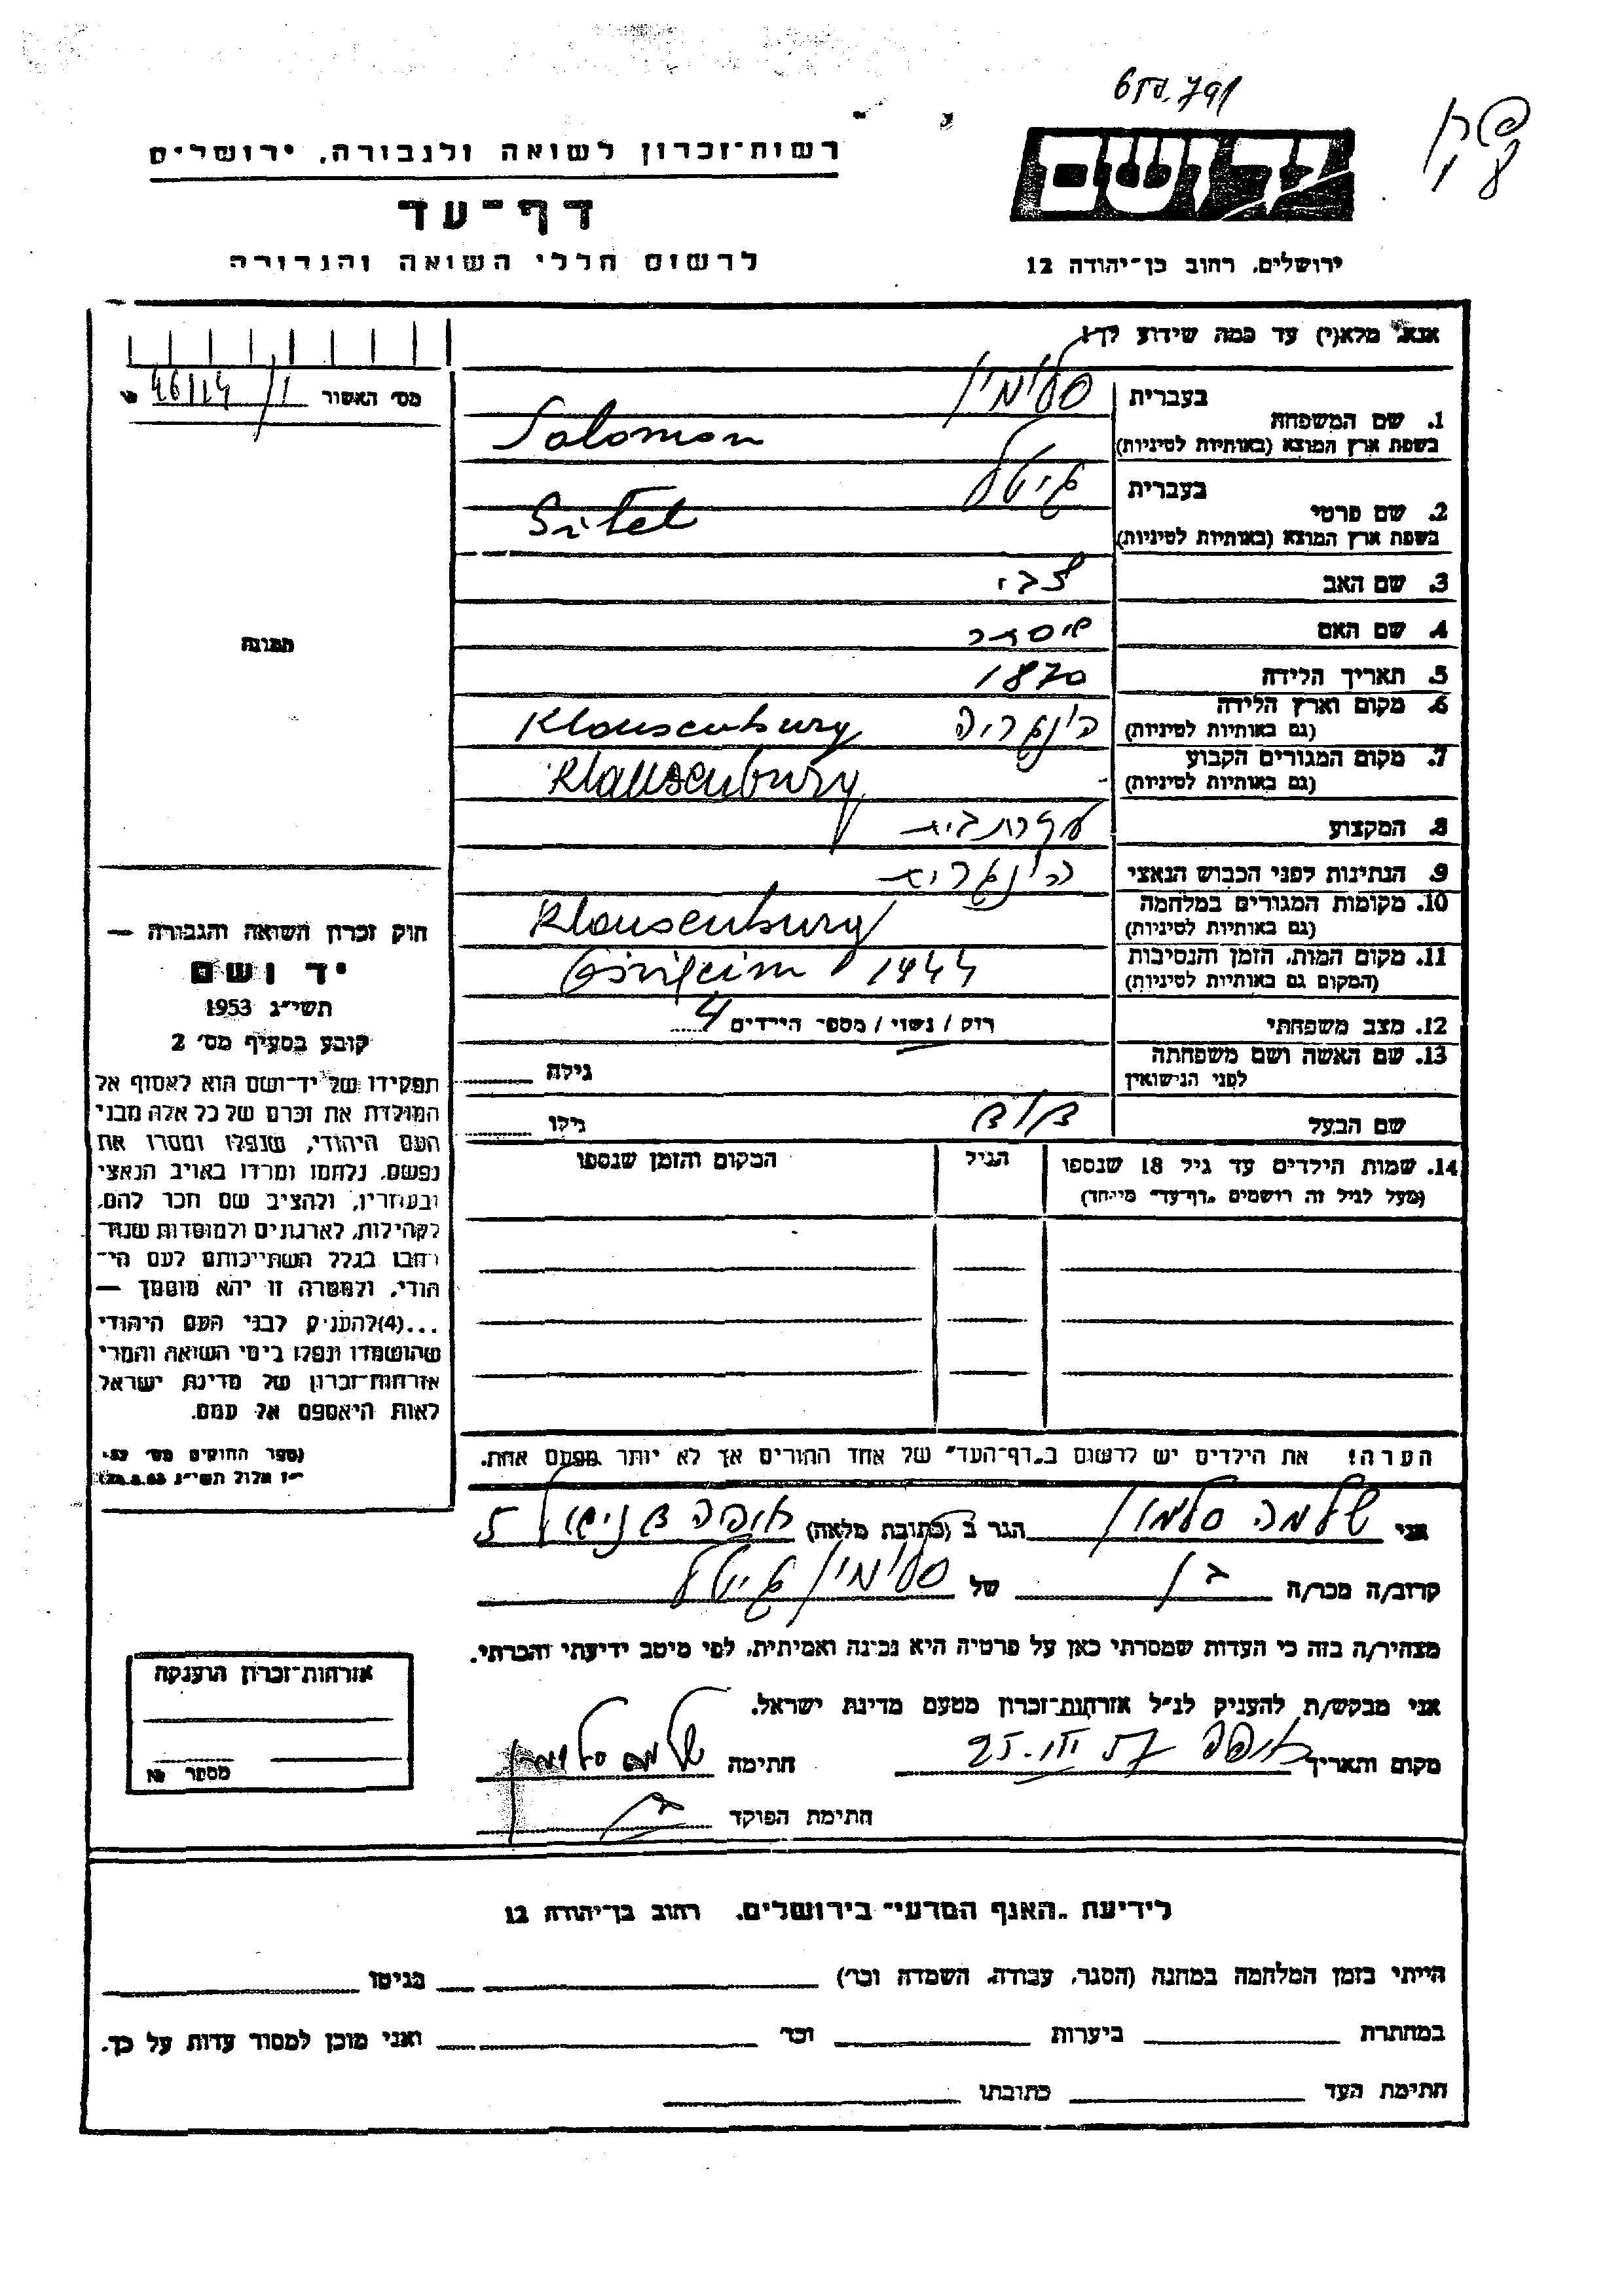 רשות־זכרון לשואה ולגבורה, ירושלים
יד ושם
דף־עד
לרשום חללי השואה והגבורה
ירושלים, רחוב בן־יהודה 12
אנא, מלא(י) עד כמה שידוע לך!
מס׳ האשור
1. שם המשפחה
בעברית
בשפת ארץ המוצא (באותיות לטיניות)
Solomon
2. שם פרטי
בעברית גיטל
בשפת ארץ המוצא (באותיות לטיניות)
3. שם האב צבי
4. שם האם
5. תאריך הלידה 1870
6. מקום וארץ הלידה
(גם באותיות לטיניות)
הונגריה Klausenburg
7. מקום המגורים הקבוע
(גם באותיות לטיניות)
Klausenburg
8. המקצוע עקרת בית
9. הנתינות לפני הכבוש הנאצי הונגרית
10. מקומות המגורים במלחמה
(גם באותיות לטיניות)
Klausenburg
11. מקום המות, הזמן והנסיבות
(המקום גם באותיות לטיניות)
1944
12. מצב משפחתי
רוק / נשוי / מספר הילדים 4
13. שם האשה ושם משפחתה
לפני הנישואין
גילה
שם הבעל דוד
גילו
14. שמות הילדים עד גיל 18 שנספו
(מעל לגיל זה רושמים „דף־עד״ מיוחד)
הגיל
המקום והזמן שנספו
הערה! את הילדים יש לרשום ב„דף־העד״ של אחד ההורים אך לא יותר מפעם אחת.
תמונה
חוק זכרון השואה והגבורה —
יד ושם
תשי״ג 1953
קובע בסעיף מס׳ 2
תפקידו של יד־ושם הוא לאסוף אל
המולדת את זכרם של כל אלה מבני
העם היהודי, שנפלו ומסרו את
נפשם, נלחמו ומרדו באויב הנאצי
ובעוזריו, ולהציב שם וזכר להם,
לקהילות, לארגונים ולמוסדות שנח־
רבו בגלל השתייכותם לעם הי־
הודי, ולמטרה זו יהא מוסמך —
...(4)להעניק לבני העם היהודי
שהושמדו ונפלו בימי השואה והמרי
אזרחות־זכרון של מדינת ישראל
לאות היאספם אל עמם.
אני שלמה סלמון הגר ב (כתובת מלאה)
קרוב/ה מכר/ה בן של
מצהיר/ה בזה כי העדות שמסרתי כאן על פרטיה היא נכונה ואמיתית, לפי מיטב ידיעתי והכרתי.
אני מבקש/ת להעניק לנ״ל אזרחות־זכרון מטעם מדינת ישראל.
מקום ותאריך 25.III. חתימה
חתימת הפוקד
אזרחות־זכרון הוענקה
מספר №
לידיעת „האגף המדעי״ בירושלים, רחוב בן־יהודה 12
הייתי בזמן המלחמה במחנה (הסגר, עבודה, השמדה וכו׳) בגיטו
במחתרת ביערות וכו׳ ואני מוכן למסור עדות על כך.
חתימת העד כתובתו